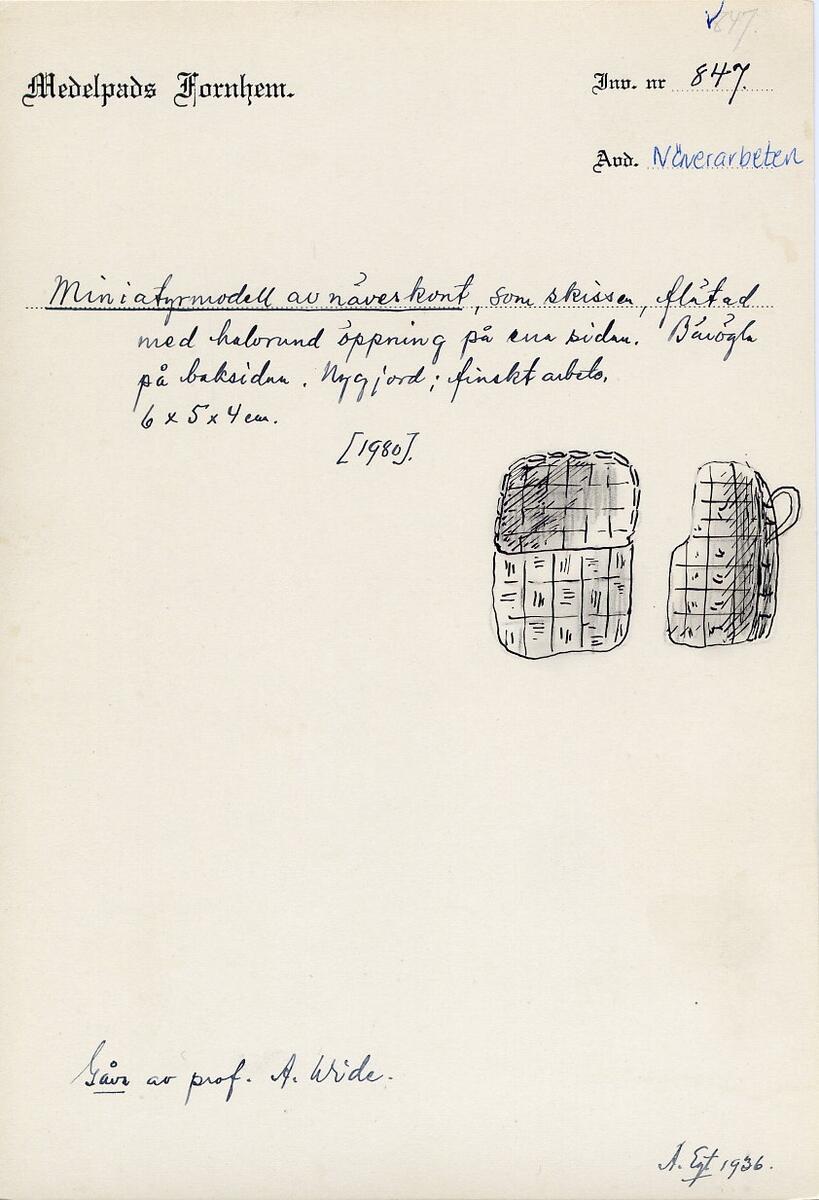 847.
Medelpads Fornhem.
Inv. nr 847.
Avd. Näverarbeten
Miniatyrmodell av näverskont, som skissen, flätad
med halvrund öppning på ena sidan. Bärögla
på baksidan. Nygjord; finskt arbete.
6 x 5 x 4 cm.
[1980].
Gåva av prof. A. Wide.
1936.